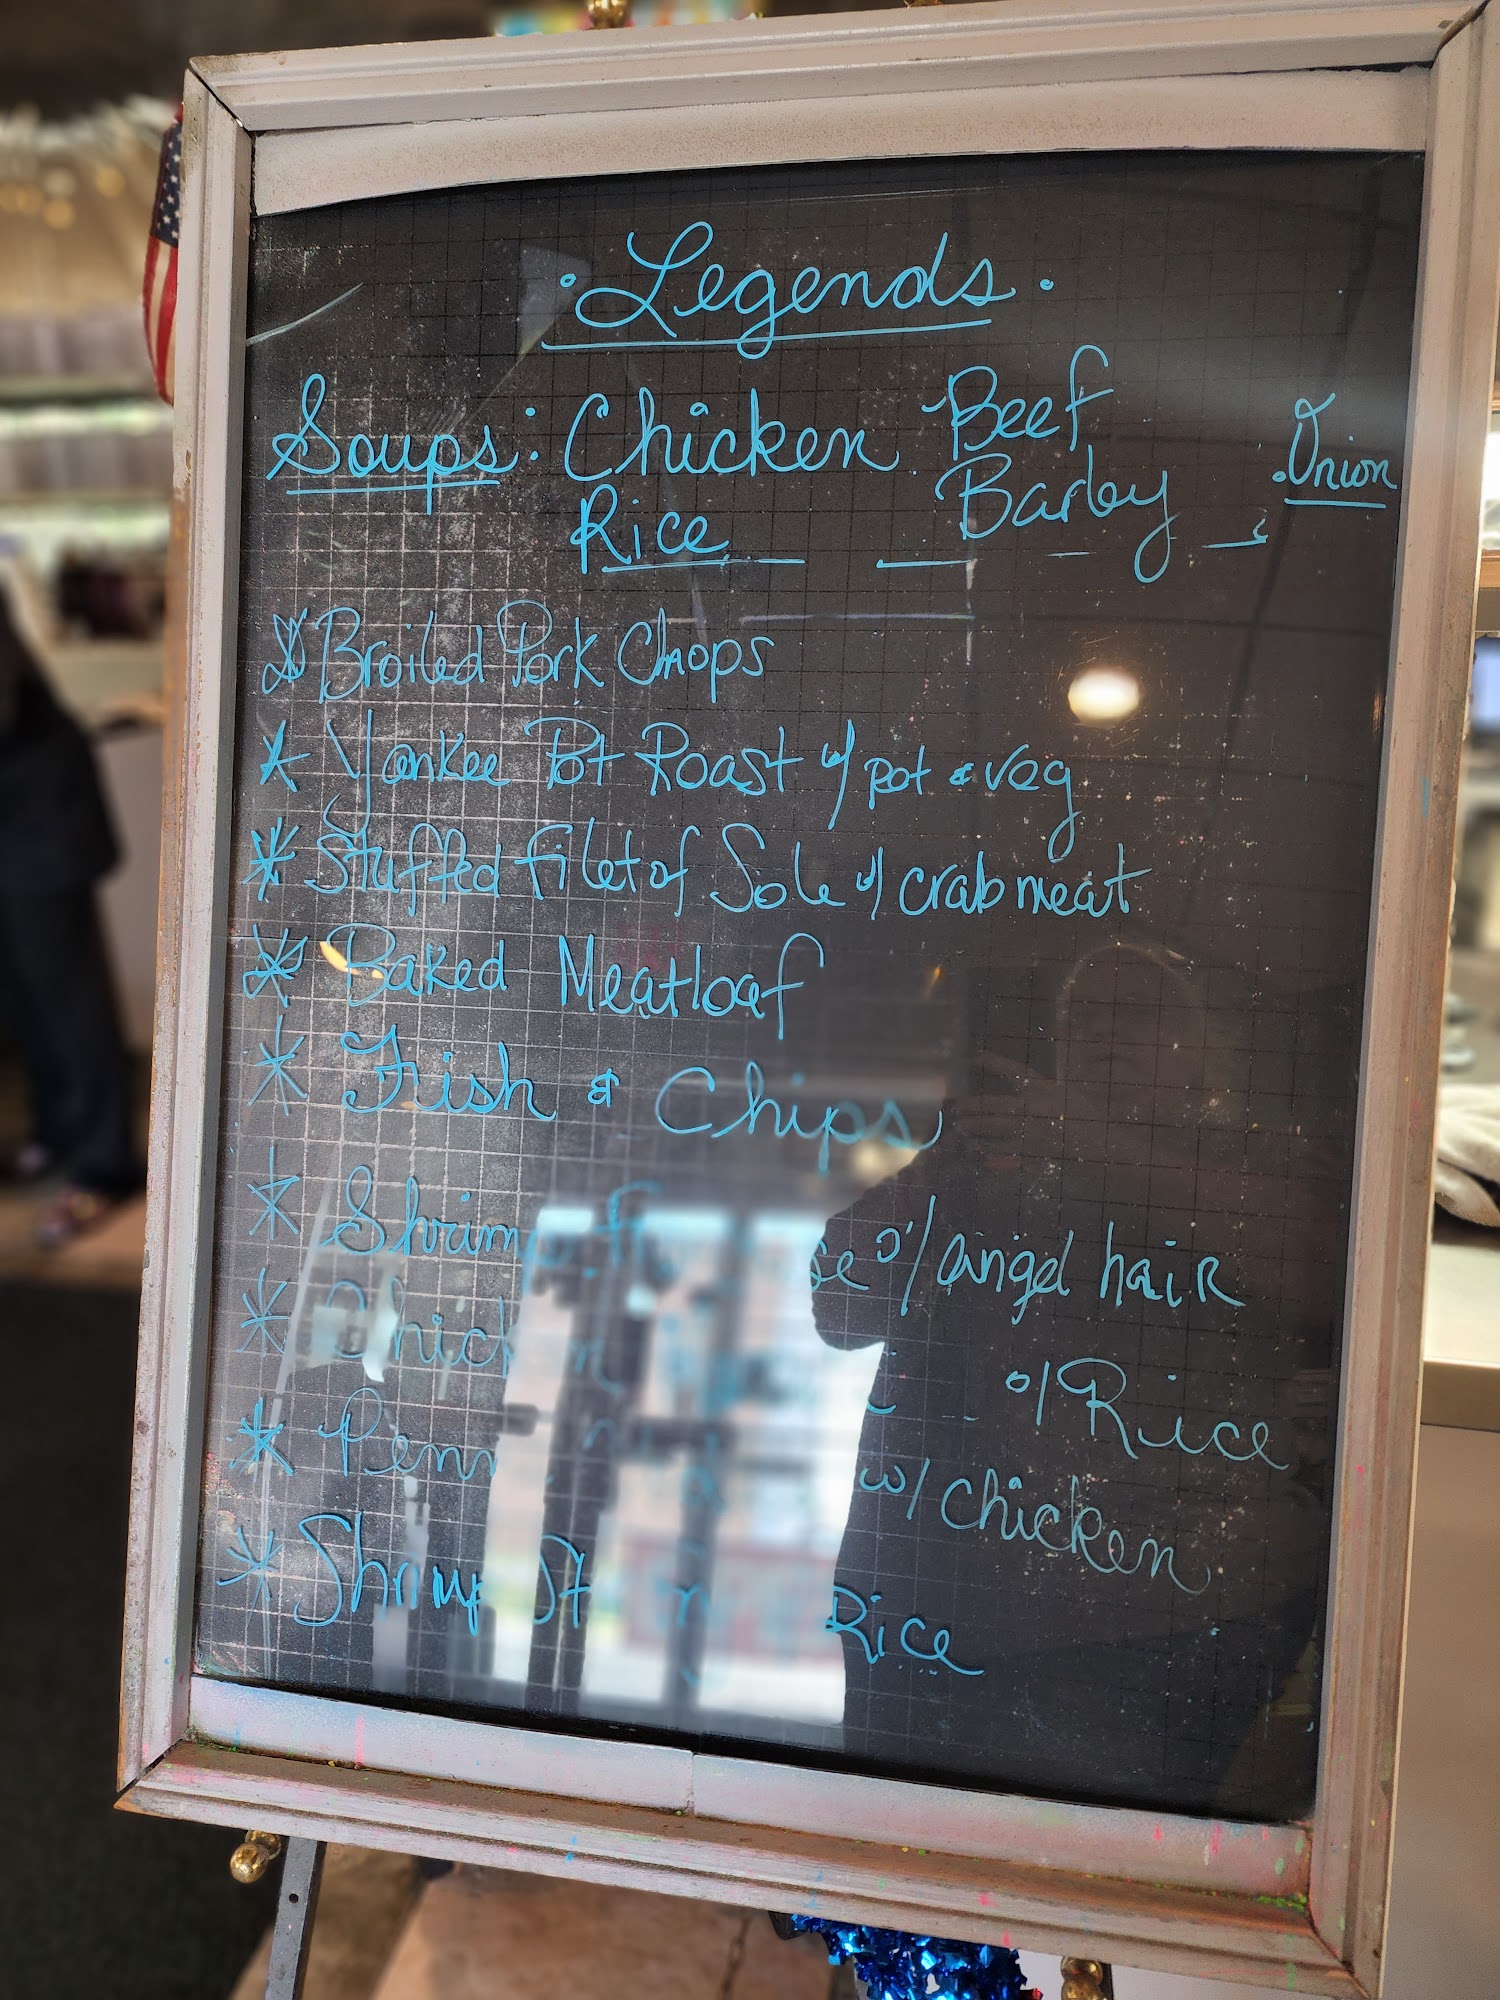 . Legends .
Soups: Chicken Rice . Beef Barley . Onion
Broiled Pork Chops
Yankee Pot Roast w/ pot & veg
Stuffed filet of Sole w/ crabmeat
Baked Meatloaf
Fish & Chips
w/ angel hair
w/ Rice
w/ chicken
Shrimp Rice